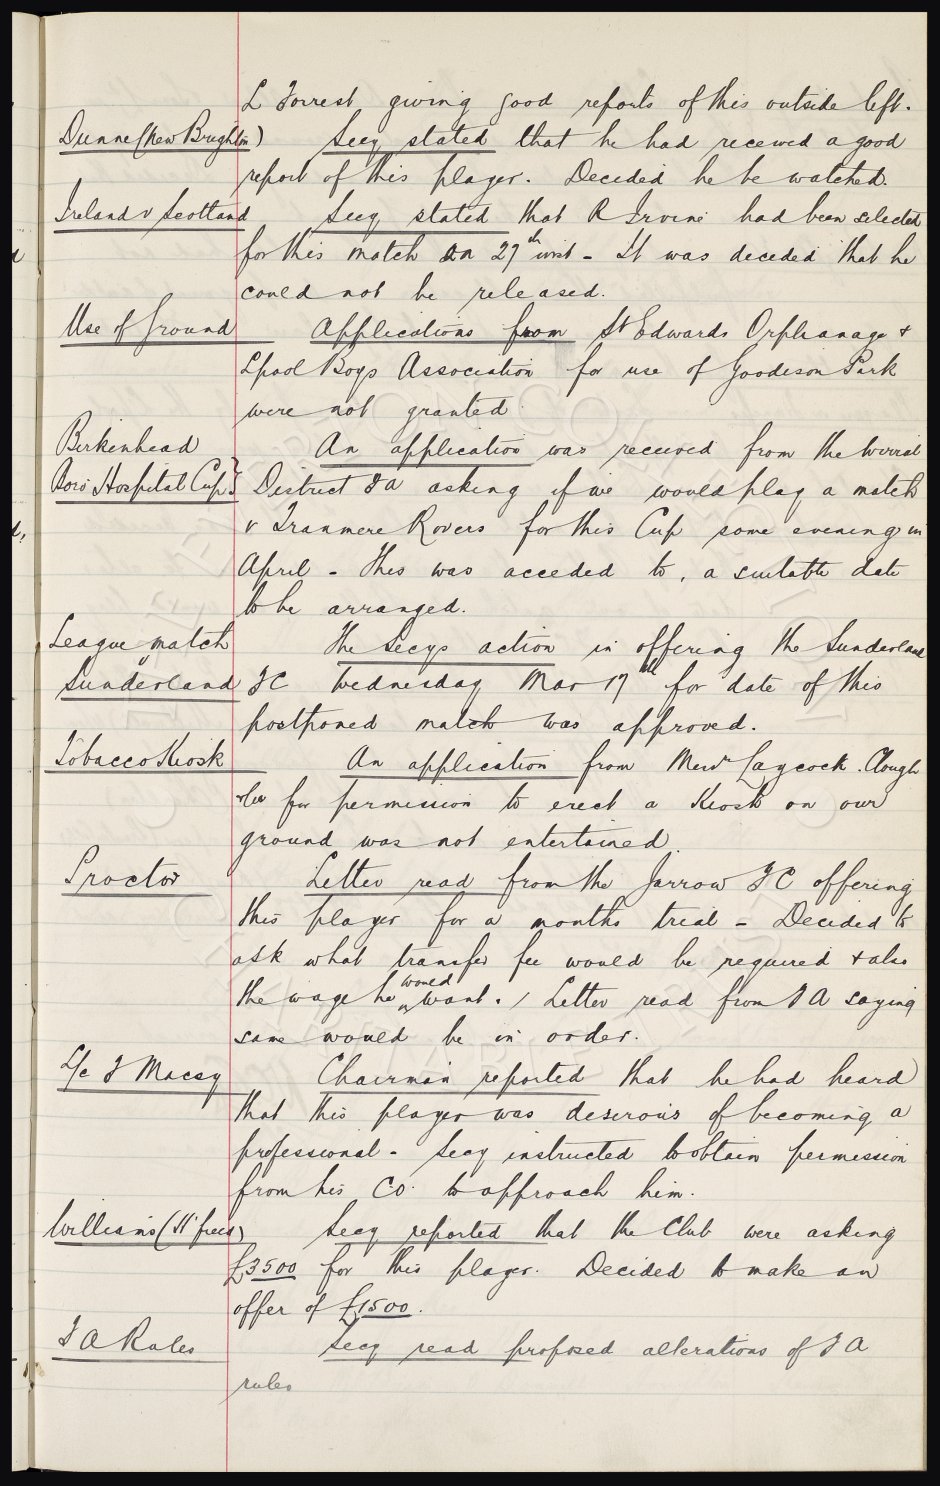 L Forrest giving good reports of this outside left.
Dunne (New Brighton) Secy stated that he had received a good
report of this player. Decided he be watched.
Ireland v Scotland Secy stated that R Irvine had been selected
for this match on 27th inst - It was decided that he
could not be released.
Use of Ground Applications from St Edwards Orphanage +
Lpool Boys Association for use of Goodison Park
were not granted
Birkenhead An application was received from the Wirral
Boro' Hospital Cup} District FA asking if we would play a match
v Tranmere Rovers for this Cup some evening in
April - This was acceded to, a suitable date
to be arranged.
League match The Secys action in offering the Sunderland
Sunderland FC Wednesday Mar 17th for date of this
postponed match was approved.
Tobacco Kiosk An application from Messrs Laycock. Clough
for permission to erect a Kiosk on our
ground was not entertained.
Proctor Letter read from the Jarrow FC offering
this player for a months trial - Decided to
ask what transfer fee would be required + also
the wage he would want. / Letter read from F A saying
same would be in order.
L/c F Macey Chairman reported that he had heard
that this player was desirous of becoming a
professional - Secy instructed to obtain permission
from his C.O. to approach him.
Williams (H'field) Secy reported that the Club were asking
£3500 for this player. Decided to make an
offer of £1500.
F A Rules Secy read proposed alterations of F A
rules